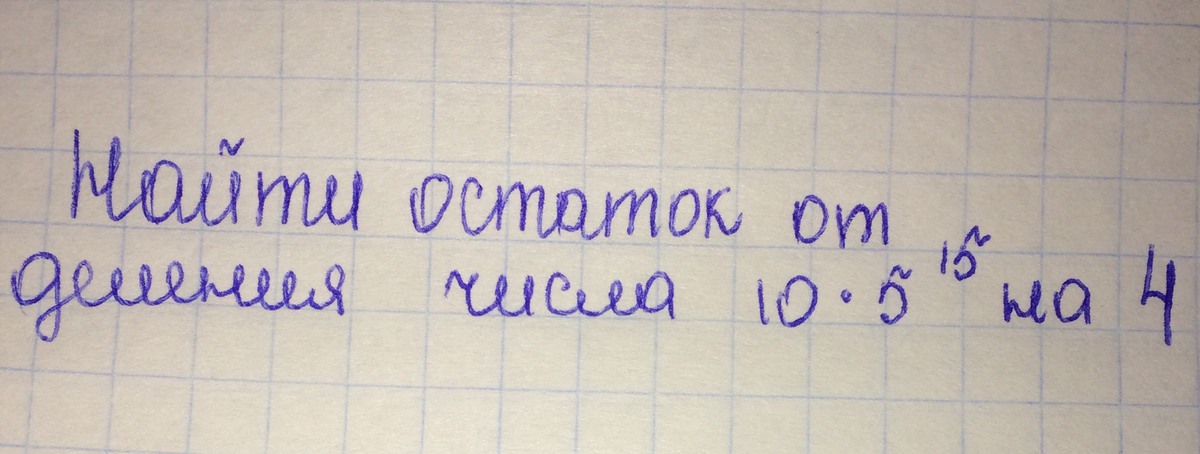 Найти остаток от
деления числа 10·5¹⁵ на 4